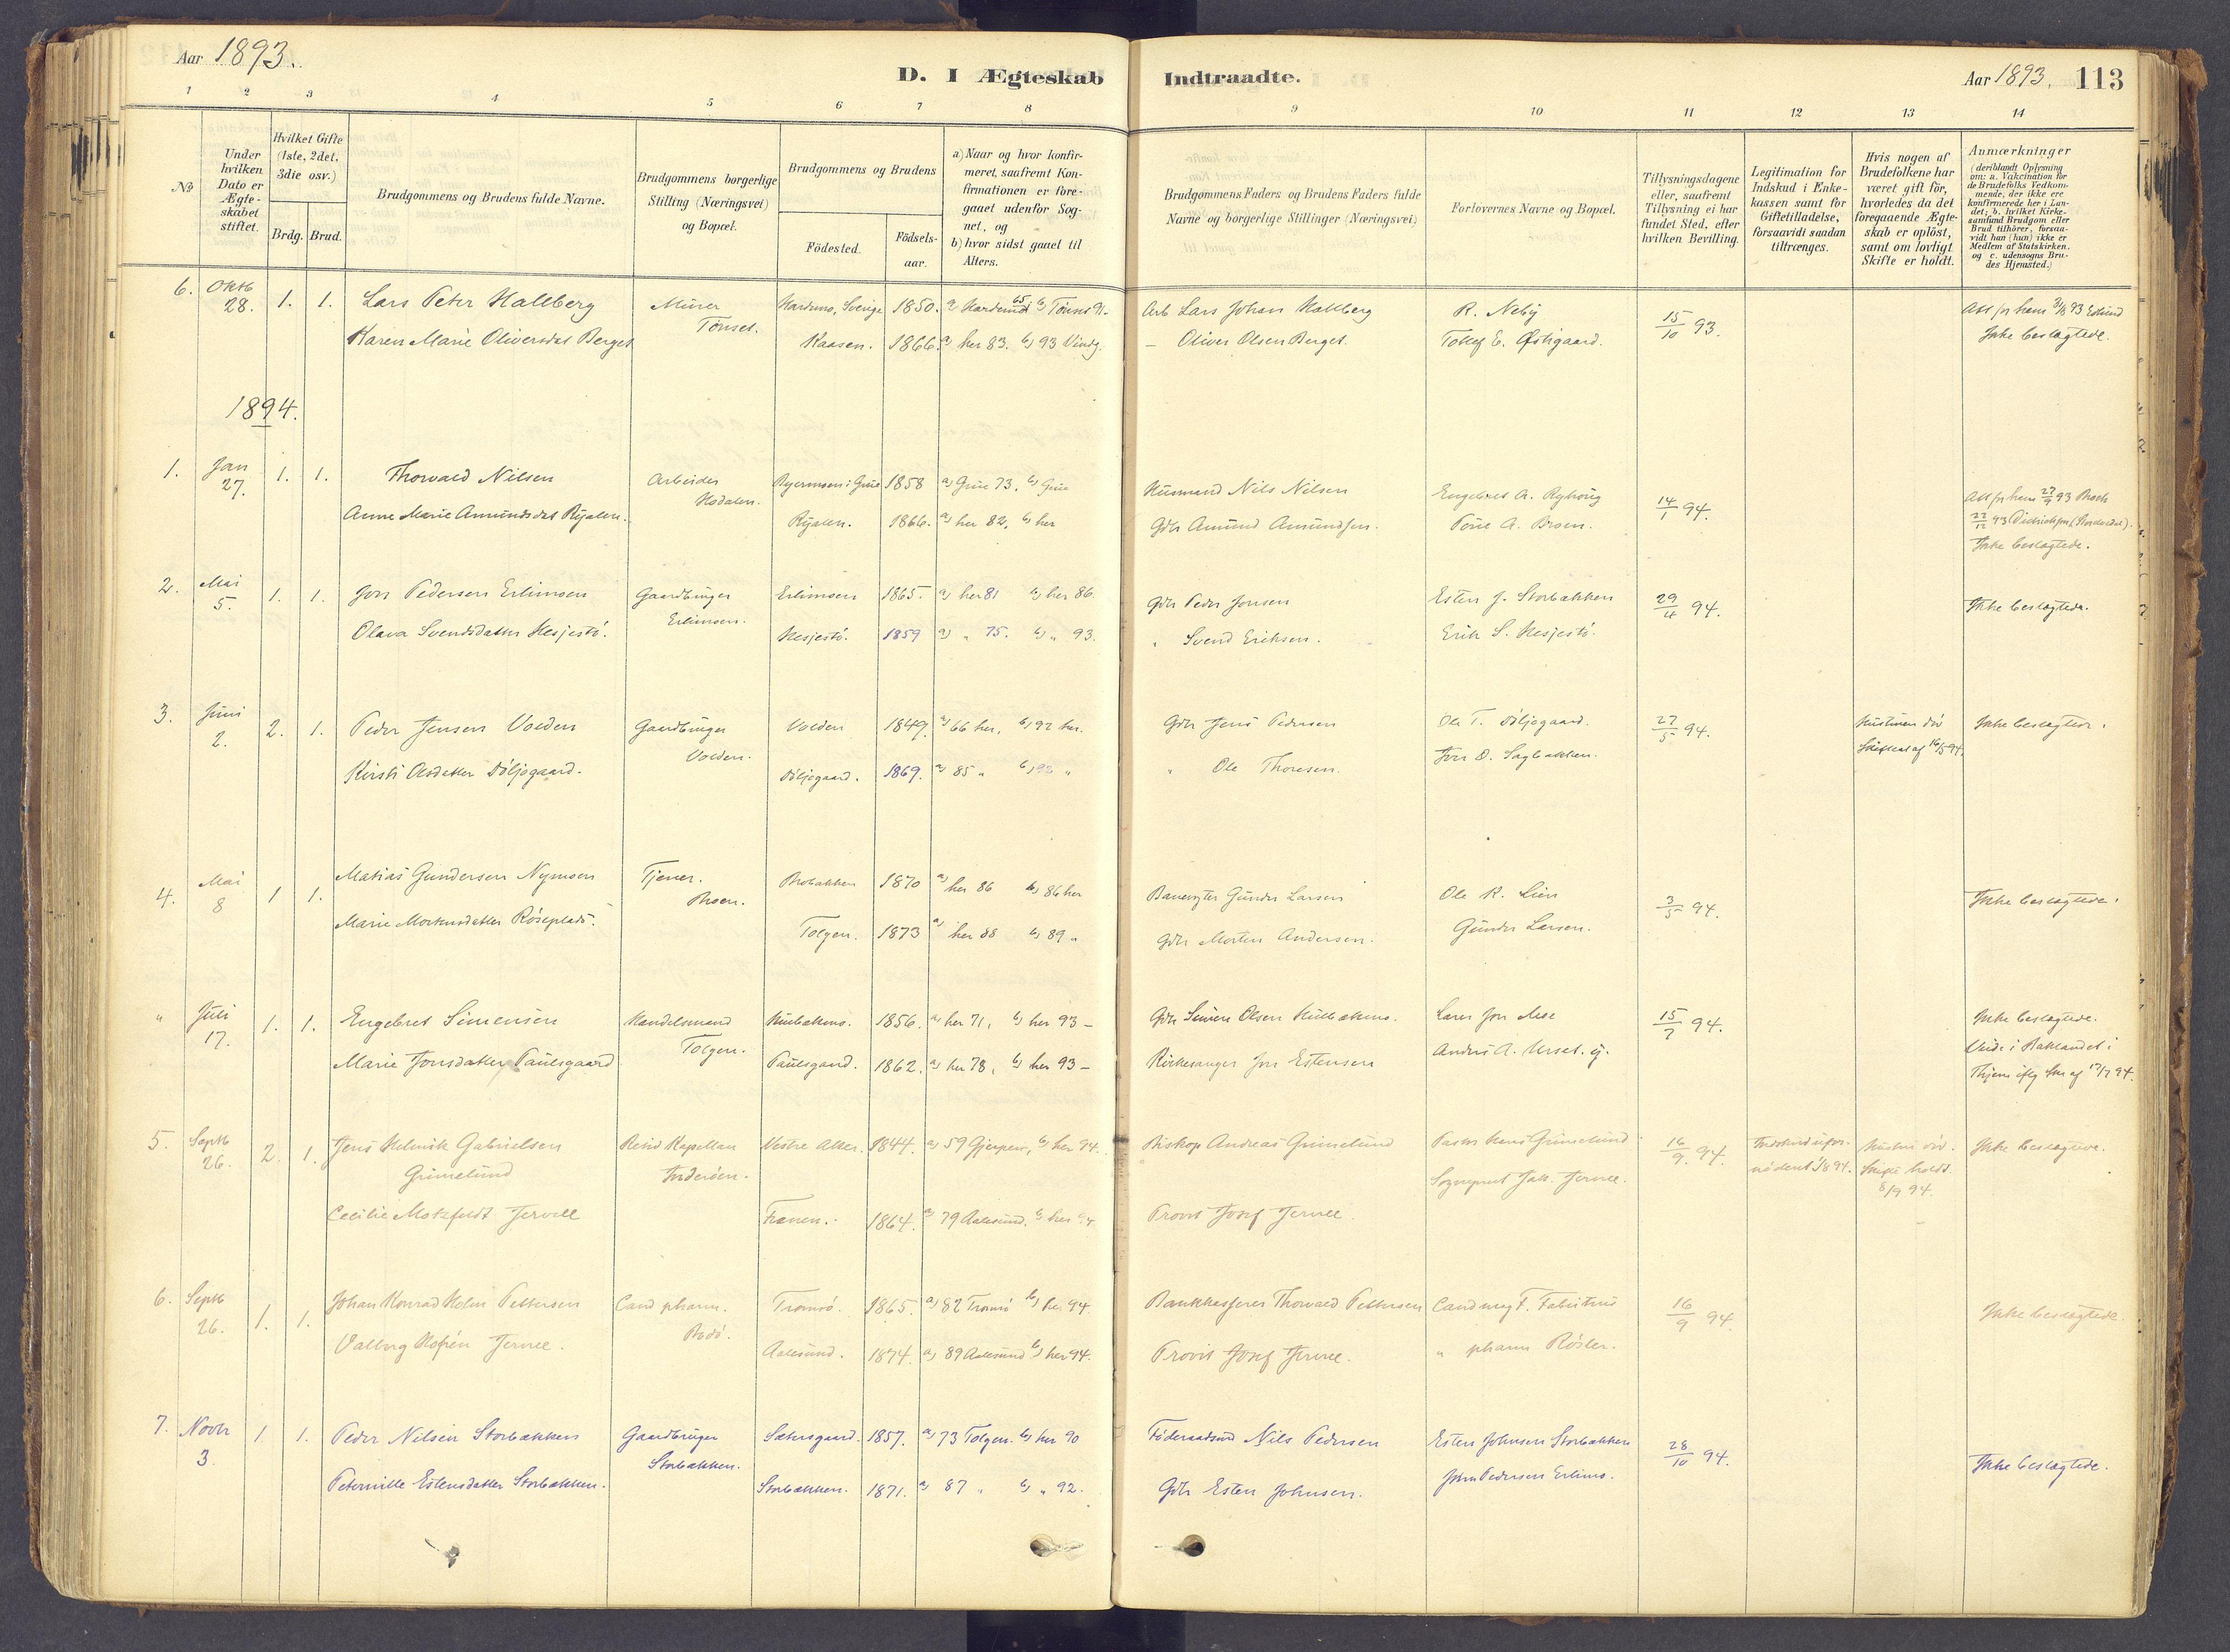 Aar 1893.
D. I Ægteskab Indtraadte.
Aar 1893. 113
1 2 3 4 5 6 7 8 9 10 11 12 13 14
No
Under hvilken Dato er Ægteskabet stiftet.
Hvilket Gifte (1ste, 2det, 3die osv.)
Brdg. Brud.
Brudgommens og Brudens fulde Navne.
Brudgommens borgerlige Stilling (Næringsvei) og Bopæl.
Brudgommens og Brudens
Födested. Födsels-aar.
a) Naar og hvor konfirmeret, saafremt Konfirmationen er foregaaet udenfor Sognet, og
b) hvor sidst gaaet til Alters.
Brudgommens Faders og Brudens Faders fulde Navne og borgerlige Stillinger (Næringsvei)
Forlovernes Navne og Bopæl.
Tillysningsdagene eller, saafremt Tillysning ei har fundet Sted, efter hvilken Bevilling.
Legitimation for Indskud i Enkekassen samt for Giftetilladelse, forsaavidt saadan tiltrænges.
Hvis nogen af Brudefolkene har været gift för, hvorledes da det foregaaende Ægteskab er oplöst, samt om lovligt Skifte er holdt.
Anmærkninger
(deriblandt Oplysning om: a. Vakcination för de Brudefolks Vedkommende, der ikke ere konfirmerede her i Landet; b. hvilket Kirkesamfund Brudgom eller Brud tilhörer, forsaavidt han (hun) ikke er Medlem af Statskirken, og c. udensogns Brudes Hjemsted.)
6. Oktb 28. 1. 1. Lars Peter Hallberg Murer Tönset. Sverige 1850. Tönset 91. Arb Lars Johan Hallberg R. Neby 15/10 93.
Karen Marie Oliversdat Berget Kaasen. 1866. a) her 83. b) 93 Vindg. – Oliver Olsen Berget. Tollef E. Østigaard. Ikke beslægtede.
1894.
1. Jan 27. 1. 1. Thorvald Nilsen Arbeider Hodalen. 1858 a) Grue 73. b) Grue Husmand Nils Nilsen Engebret A. Ryhoug 14/1 94.
Anne Marie Amundsdat Ryalen. Ryalen. 1866. a) her 82, b) her Gbr Amund Amundsen. Ikke beslægtede.
2. Mai 5. 1. 1. Jon Pedersen Erlimoen Gaardbruger Erlimoen. Erlimoen 1865. a) her 81 b) her 86. Gbr Peder Jonsen Esten J. Storbækken 29/4 94. Ikke beslægtede.
Olava Svendsdatter Hesjestö. Hesjestö. 1859 a) " 75. b) " 93. " Svend Eriksen. Erik S. Hesjestö.
3. Juni 2. 2. 1. Peder Jensen Volden Gaardbruger Volden. Volden 1849. a) 66 her, b) 92 her. Gbr Jens Pedersen Ole T. Döljegaard. 27/5 94. Hustruen död Ikke beslægtede.
Kirsti Olsdatter Döljegaard. Döljegaard. 1869. a) 85 " b) 92 " " Ole Thoresen. Jon O. Sagbakken.
4. Mai 8 1 1. Matias Gundersen Nymoen Tjener. Moen. 1870 a) her 86 b) 86 her Gunder Larsen Ole K. Lien 3/5 94. Ikke beslægtede.
Marie Mortensdatter Röseplads. Tolgen. 1873 a) her 88 b) 89 " Gbr Morten Andersen. Gunder Larsen.
" Juli 17. 1. 1. Engebret Simensen Handelsmand Tolgen. 1856. a) her 71, b) her 93 – Gbr Simen Olsen Lærer Jon Moe 15/7 94. Ikke beslægtede.
Marie Jonsdatter Paulsgaard Paulsgaard. 1862. a) her 78, b) her 93 – Kirkesanger Jon Estensen
5. Septb 26. 2. 1. Jens Henrik Gabrielsen Grimelund Resid Kapellan Inderöen. Vestre Aker. 1844. a) 59 Gjerpen, b) her 94. Biskop Andreas Grimelund Pastor Hans Grimelund 16/9. 94. Hustru död. Skifte holdt. 8/9 94. Ikke beslægtede.
Cecilie Motzfeldt Jervell Frænen. 1864. a) 79 Aalesund. b) her 94 Provst Josef Jervell Sognepræst Jak. Jervell.
6. Septb 26. 1. 1. Johan Konrad Holm Pettersen Cand pharm. Bodö. Tromsö. 1865. a) 82 Tromsö b) her 94. Bankkasserer Thorvald Pettersen Cand mag F. Fabritius 16/9 94. Ikke beslægtede.
Jervell. Aalesund. 1874. a) 89 Aalesund b) her 94. Provst Josef Jervell. " pharm Rösler.
7. Novbr 3. 1. 1. Peder Nilsen Storbækken Gaardbruger Storbækken. Sætersgaard. 1857. a) 73 Tolgen. b) her 90 Föderaadsmd Nils Pedersen Esten Johnsen Storbækken 28/10 94. Ikke beslægtede.
Pernille Estensdatter Storbækken. Storbækken. 1871. a) 87 " b) " 92. Gbr Esten Johnsen. John Pedersen Erlimo.